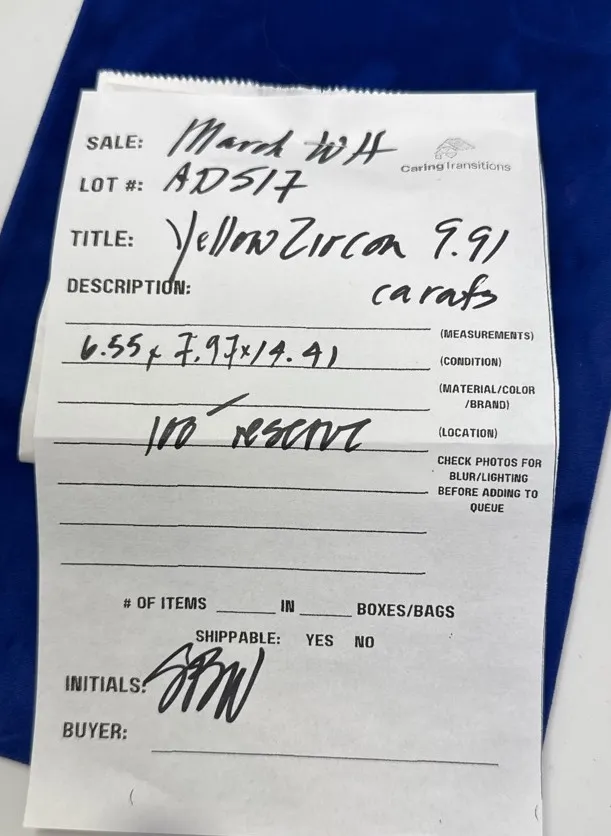 SALE: March WH
Caring Transitions
LOT #: AD517
TITLE: Yellow Zircon 9.91
DESCRIPTION: carats
(MEASUREMENTS)
6.55 x 7.97 x 14.41 (CONDITION)
(MATERIAL/COLOR
/BRAND)
100 — reserve (LOCATION)
CHECK PHOTOS FOR
BLUR/LIGHTING
BEFORE ADDING TO
QUEUE
# OF ITEMS ______ IN ______ BOXES/BAGS
SHIPPABLE: YES NO
INITIALS: SBW
BUYER: